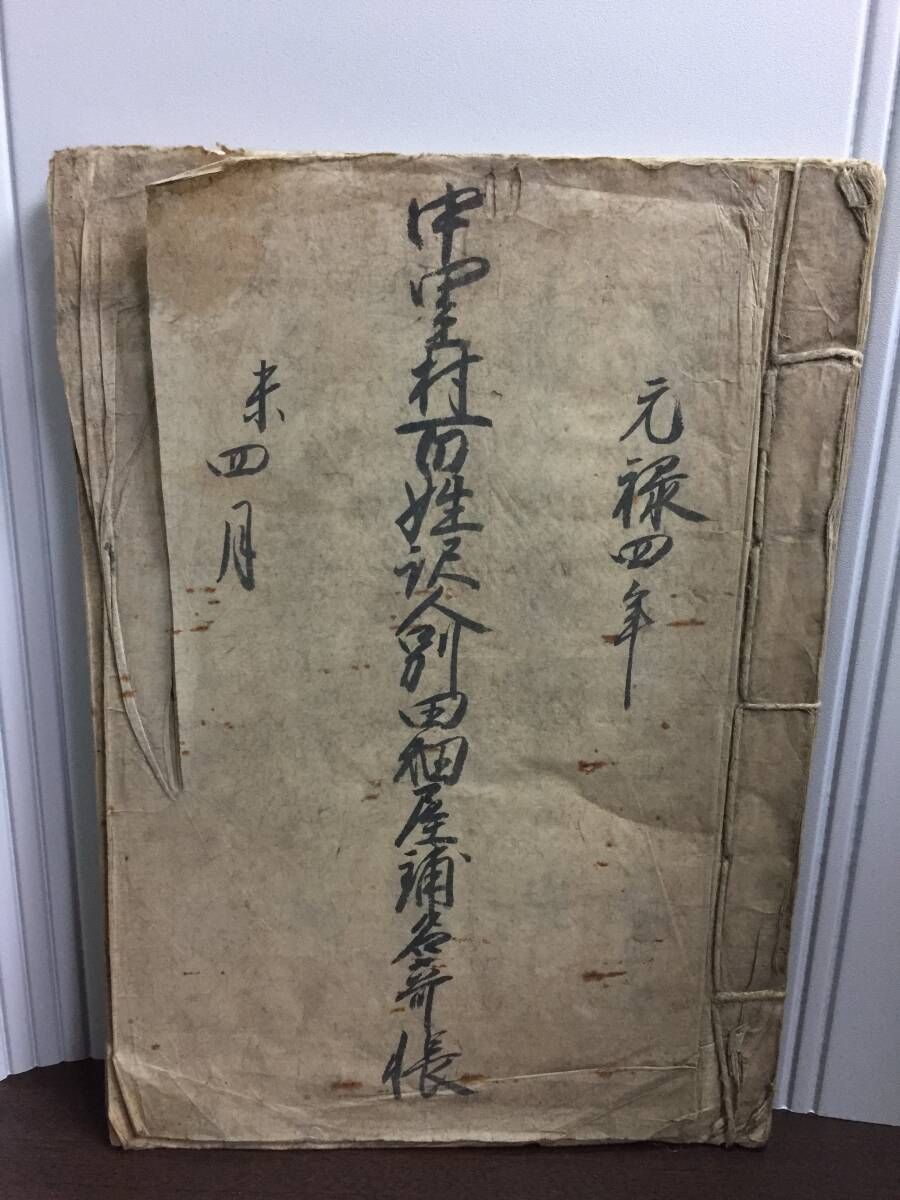 元禄四年
中里村百姓訳人別田畑屋鋪名寄帳
未四月